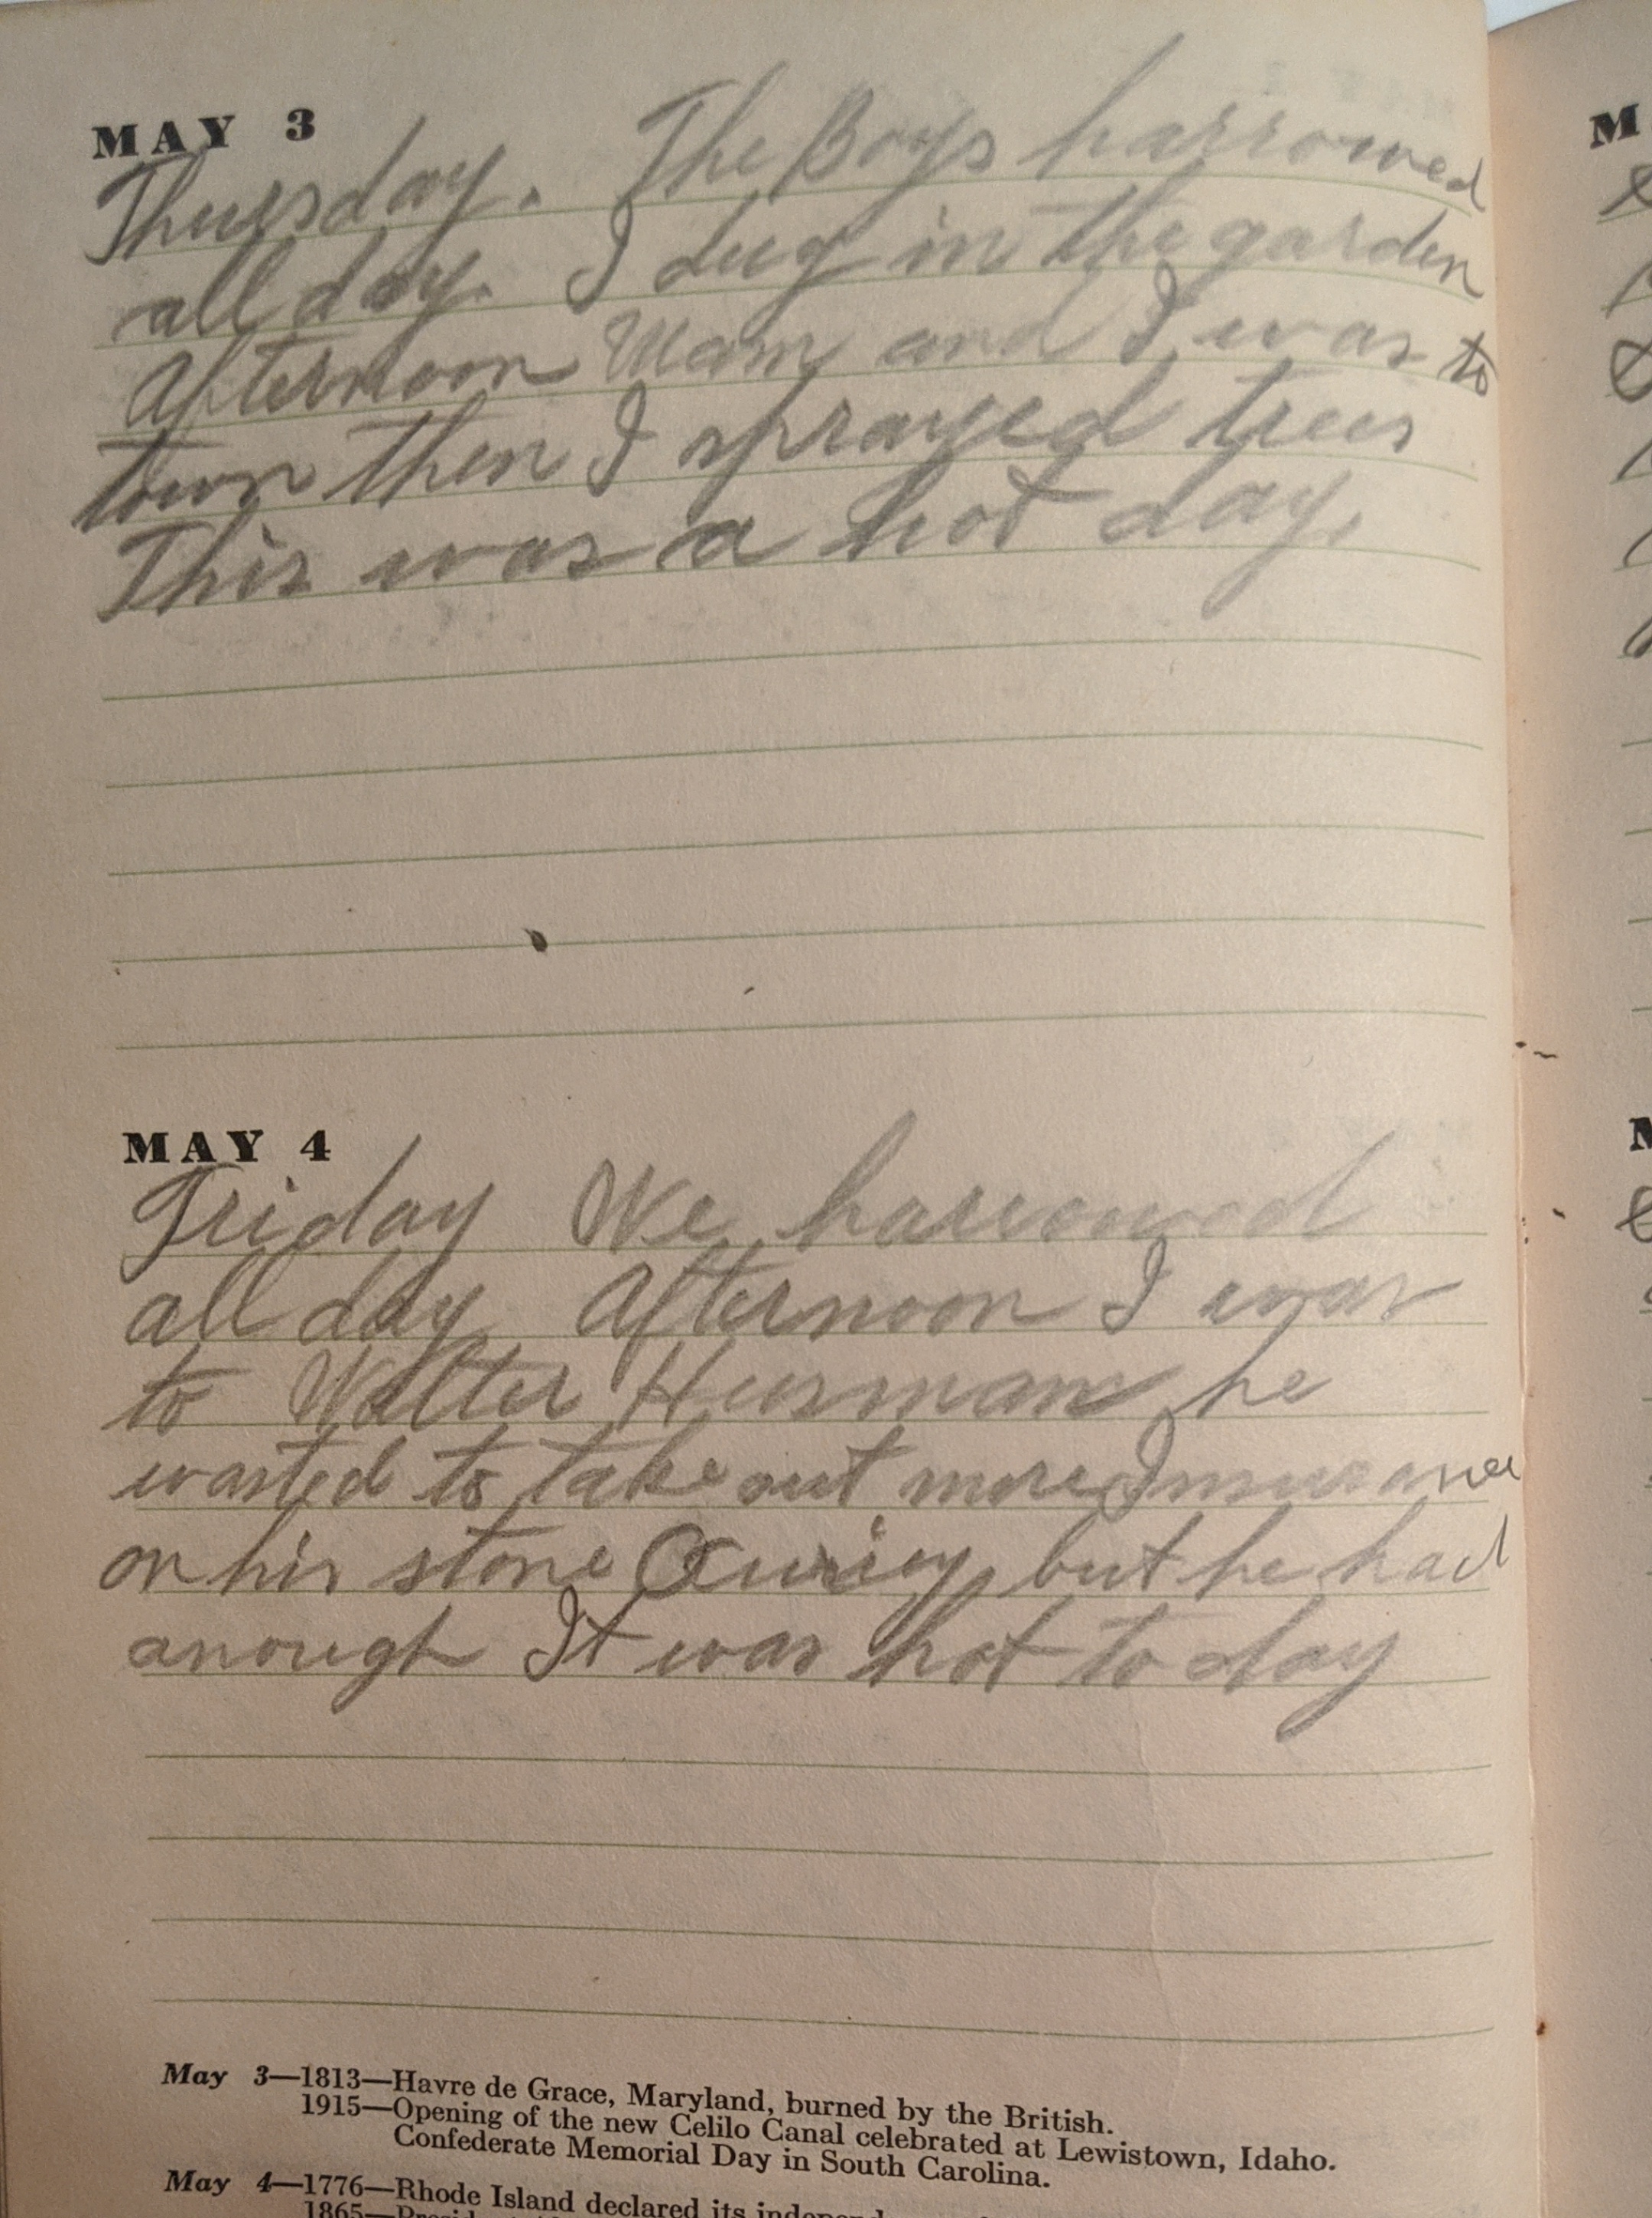 MAY 3
Thursday. The Boys harrowed
all day. I dug in the garden
Afternoon Mam and I was to
town then I sprayed trees
This was a hot day.
MAY 4
Friday We harrowed
all day Afternoon I was
to Walter Hursman he
wanted to take out more Insurance
on his stone but he had
anough It was hot to day
May 3—1813—Havre de Grace, Maryland, burned by the British.
1915—Opening of the new Celilo Canal celebrated at Lewistown, Idaho.
Confederate Memorial Day in South Carolina.
May 4—1776—Rhode Island declared its
1865—